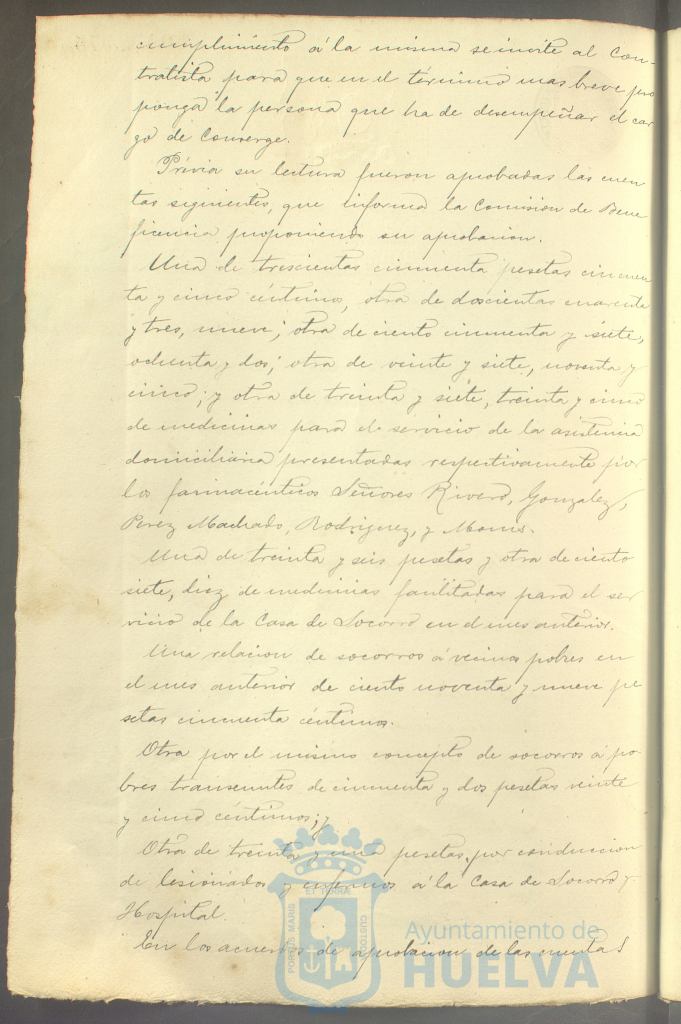 cumplimiento á la misma se invite al Con-
tratista para que en el término mas breve pro
ponga la persona que ha de desempeñar el car
go de Converge.
Prévia su lectura fueron aprobadas las cuen
tas siguientes, que informa la Comision de Bene
ficencia proponiendo su aprobacion.
Una de trescientas cincuenta pesetas cincuen
ta y cinco céntimos, otra de doscientas cuarenta
y tres, nueve; otra de ciento cincuenta y siete,
ochenta y dos; otra de veinte y siete, noventa y
cinco; y otra de treinta y siete, treinta y cinco
de medicinas para el servicio de la asistencia
domiciliaria presentadas respectivamente por
los farmacéuticos Señores Rivero, Gonzalez,
Perez Machado, Rodriguez, y
Una de treinta y seis pesetas y otra de ciento
siete, diez de medicinas facilitadas para el ser
vicio de la Casa de Socorro en el mes anterior.
Una relacion de socorros á vecinos pobres en
el mes anterior de ciento noventa y nueve pe
setas cincuenta céntimos.
Otra por el mismo concepto de socorros á po
bres transeuntes de cincuenta y dos pesetas veinte
y cinco céntimos; y
Otra de treinta y una pesetas, por conduccion
de lesionados y enfermos á la Casa de Socorro y
Hospital.
En los acuerdos de aprobacion de las cuentas
PORTUS MARIS
ET TERRÆ
CUSTODIA
Ayuntamiento de
HUELVA